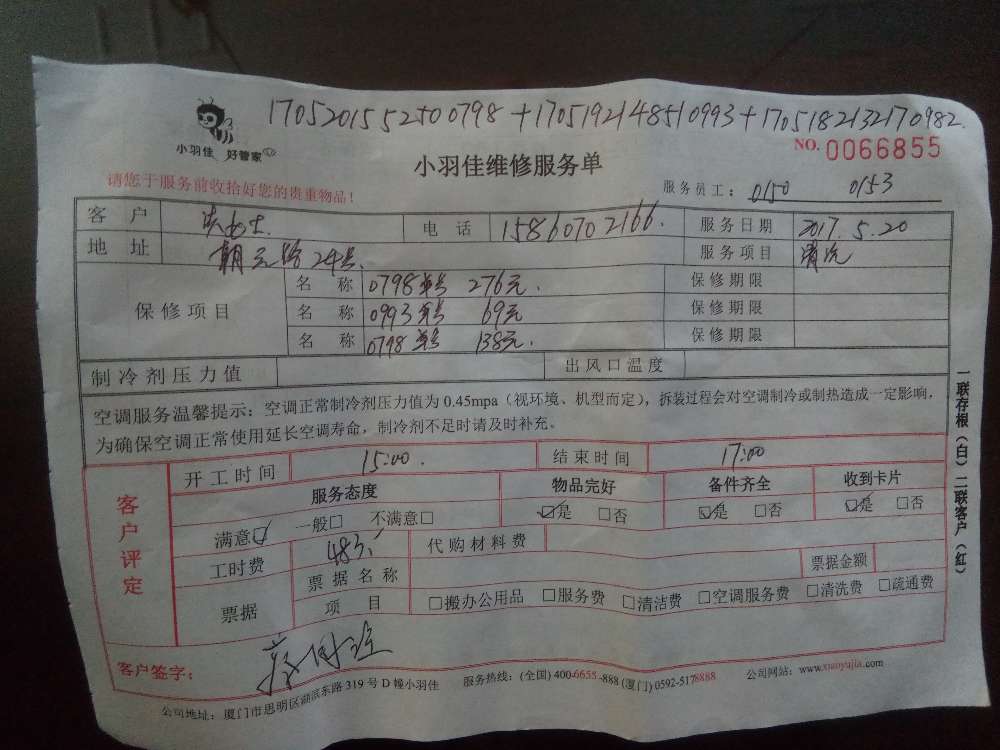 170520155250 0798 + 170519214851 0993 + 170518213217 0982
小羽佳 好管家
NO. 0066855
小羽佳维修服务单
请您于服务前收拾好您的贵重物品！
服务员工： 0150 0153
客 户 女士 电 话 15860702166. 服务日期 2017.5.20
地 址 朝元路24号 服务项目 清洗
保修项目
名 称 0798单号 276元. 保修期限
名 称 0993单号 69元 保修期限
名 称 0798单号 138元. 保修期限
制冷剂压力值 出风口温度
空调服务温馨提示：空调正常制冷剂压力值为 0.45mpa（视环境、机型而定），拆装过程会对空调制冷或制热造成一定影响，
为确保空调正常使用延长空调寿命，制冷剂不足时请及时补充。
客户评定
开工时间 15:00. 结束时间 17:00
服务态度 物品完好 备件齐全 收到卡片
满意☑ 一般□ 不满意□ ☑是 □否 ☑是 □否 ☑是 □否
工时费 483. 代购材料费
票据 票据名称 票据金额
项 目 □搬办公用品 □服务费 □清洁费 □空调服务费 □清洗费 □疏通费
客户签字：
公司地址：厦门市思明区湖滨东路 319 号 D 幢小羽佳 服务热线：(全国) 400-6655-888 (厦门) 0592-5178888 公司网站：www.xiaoyujia.com
一联存根（白）二联客户（红）